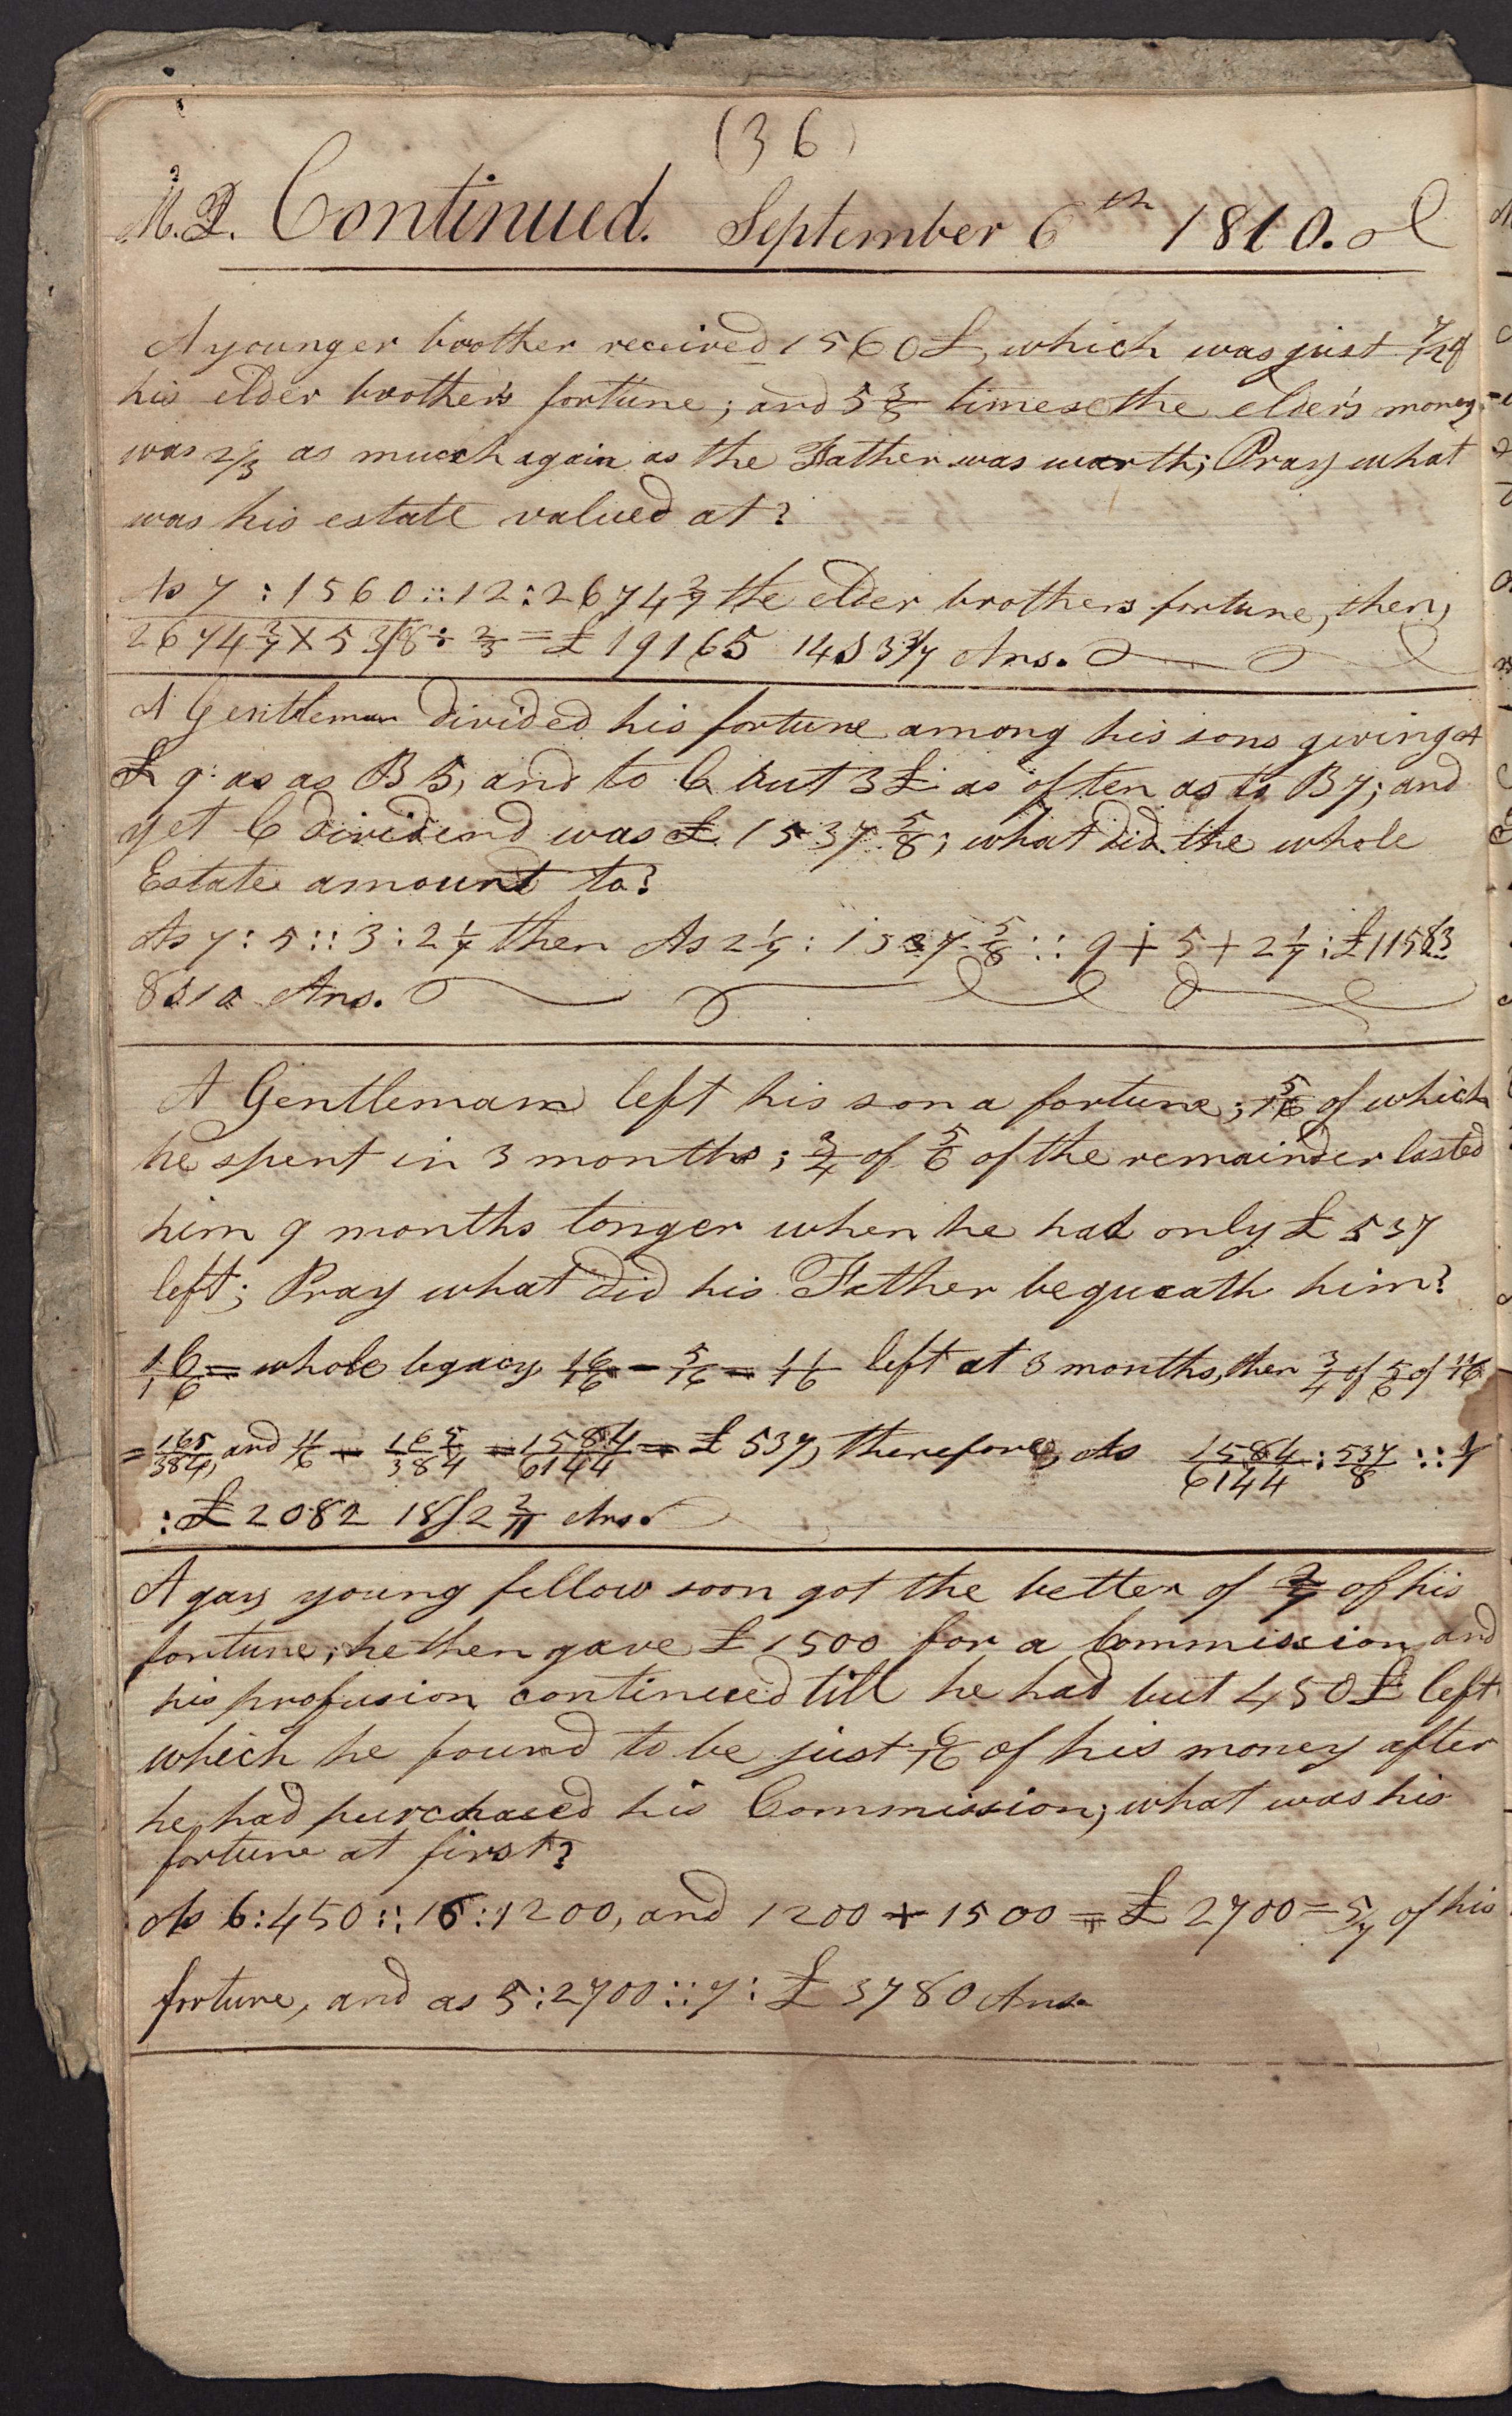 (36)
M.Q. Continued. September 6th 1810.
A younger brother received 1560£, which was just 7/12 of
his elder brother's fortune; and 5 3/8 times the elder's money
was 2/3 as much again as the Father was worth; Pray what
was his estate valued at?
As 7 : 1560 :: 12 : 2674 2/7 the elder brothers fortune, then,
2674 2/7 × 5 3/8 ÷ 2/3 = £ 19165 14S 3 3/7 Ans.
A Gentleman divided his fortune among his sons giving A
£ 9 as as B 5, and to C but 3£ as often as to B 7; and
yet C dividend was £ 1537 5/8; what did the whole
Estate amount to?
As 7 : 5 :: 3 : 2 1/7 then As 2 1/7 : 1537 5/8 :: 9 + 5 + 2 1/7 : £11583
8S 10 Ans.
A Gentleman left his son a fortune; 5/16 of which
he spent in 3 months; 3/4 of 5/6 of the remainder lasted
him 9 months longer when he had only £ 537
left; Pray what did his Father bequeath him?
16/16 = whole legacy 16/16 - 5/16 = 11/16 left at 3 months, then 3/4 of 5/6 of 11/16
= 165/384, and 11/16 - 165/384 = 1584/6144 = £ 537, therefore, As 1584/6144 : 537/8 :: 1
: £ 2082 18S 2 2/11 Ans.
A gay young fellow soon got the better of 2/7 of his
fortune; he then gave £ 1500 for a Commission and
his profusion continued till he had but 450£ left
which he found to be just 6/16 of his money after
he had purchased his Commission; what was his
fortune at first?
As 6 : 450 :: 16 : 1200, and 1200 + 1500 = £ 2700 = 5/7 of his
fortune, and as 5 : 2700 :: 7 : £ 3780 Ans